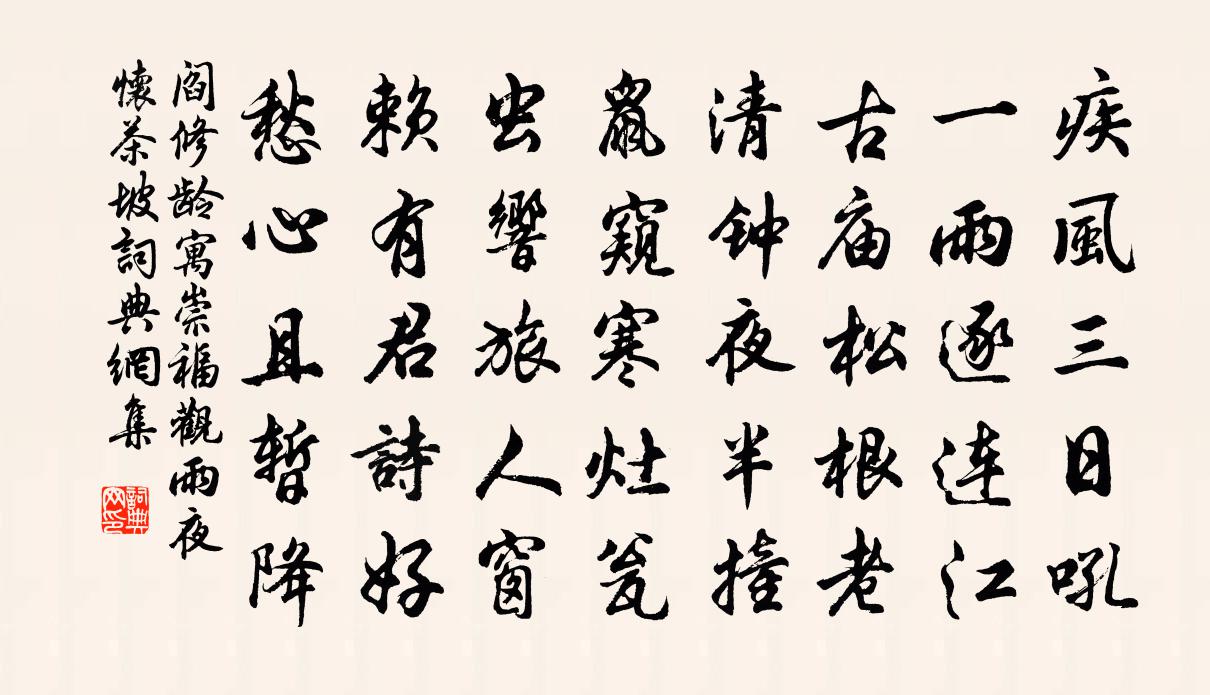 疾風三日吼
一雨逐连江
古庙松根老
清钟夜半撞
鼠窥寒灶瓮
虫響旅人窗
赖有君詩好
愁心且暂降
阎修龄寓崇福觀雨夜
懷茶坡詞典網集
詞典网印